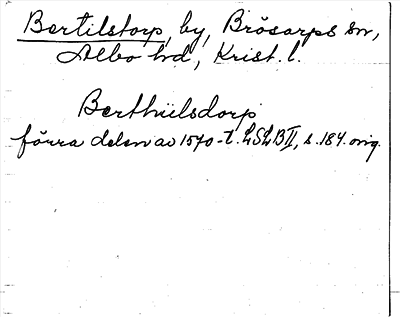 Bertilstorp, by, Brösarps sn,
Albo hd, Krist. l.
Berthiilsdorp
förra delen av 1570-t. LSLB II, s. 184. orig.